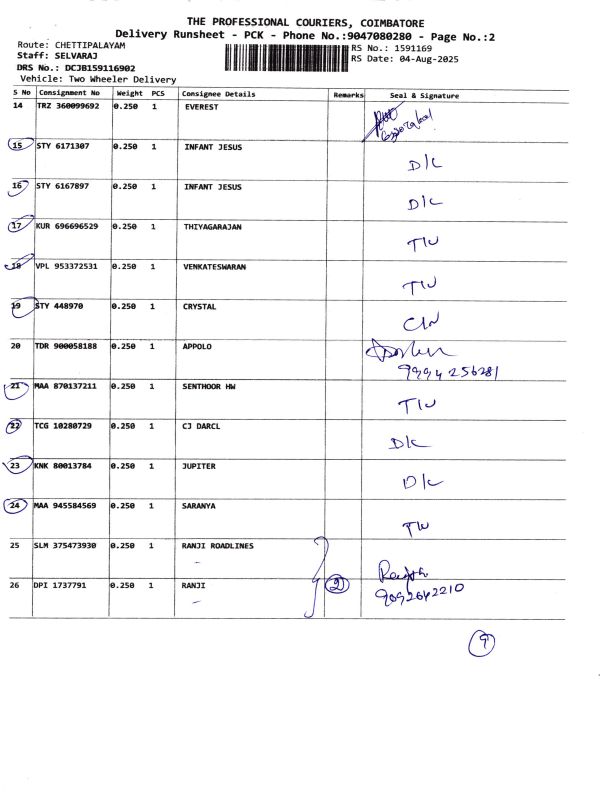 THE PROFESSIONAL COURIERS, COIMBATORE
Delivery Runsheet - PCK - Phone No.:9047080280 - Page No.:2
Route: CHETTIPALAYAM RS No.: 1591169
Staff: SELVARAJ RS Date: 04-Aug-2025
DRS No.: DCJB159116902
Vehicle: Two Wheeler Delivery
S No Consignment No Weight PCS Consignee Details Remarks Seal & Signature
14 TRZ 360099692 0.250 1 EVEREST
15 STY 6171307 0.250 1 INFANT JESUS D/C
16 STY 6167897 0.250 1 INFANT JESUS D/C
17 KUR 696696529 0.250 1 THIYAGARAJAN
18 VPL 953372531 0.250 1 VENKATESWARAN
19 STY 448970 0.250 1 CRYSTAL
20 TDR 900058188 0.250 1 APPOLO
9994256281
21 MAA 870137211 0.250 1 SENTHOOR HW
22 TCG 10280729 0.250 1 CJ DARCL D/C
23 KNK 80013784 0.250 1 JUPITER D/C
24 MAA 945584569 0.250 1 SARANYA
25 SLM 375473930 0.250 1 RANJI ROADLINES
26 DPI 1737791 0.250 1 RANJI 2
9092642210
9